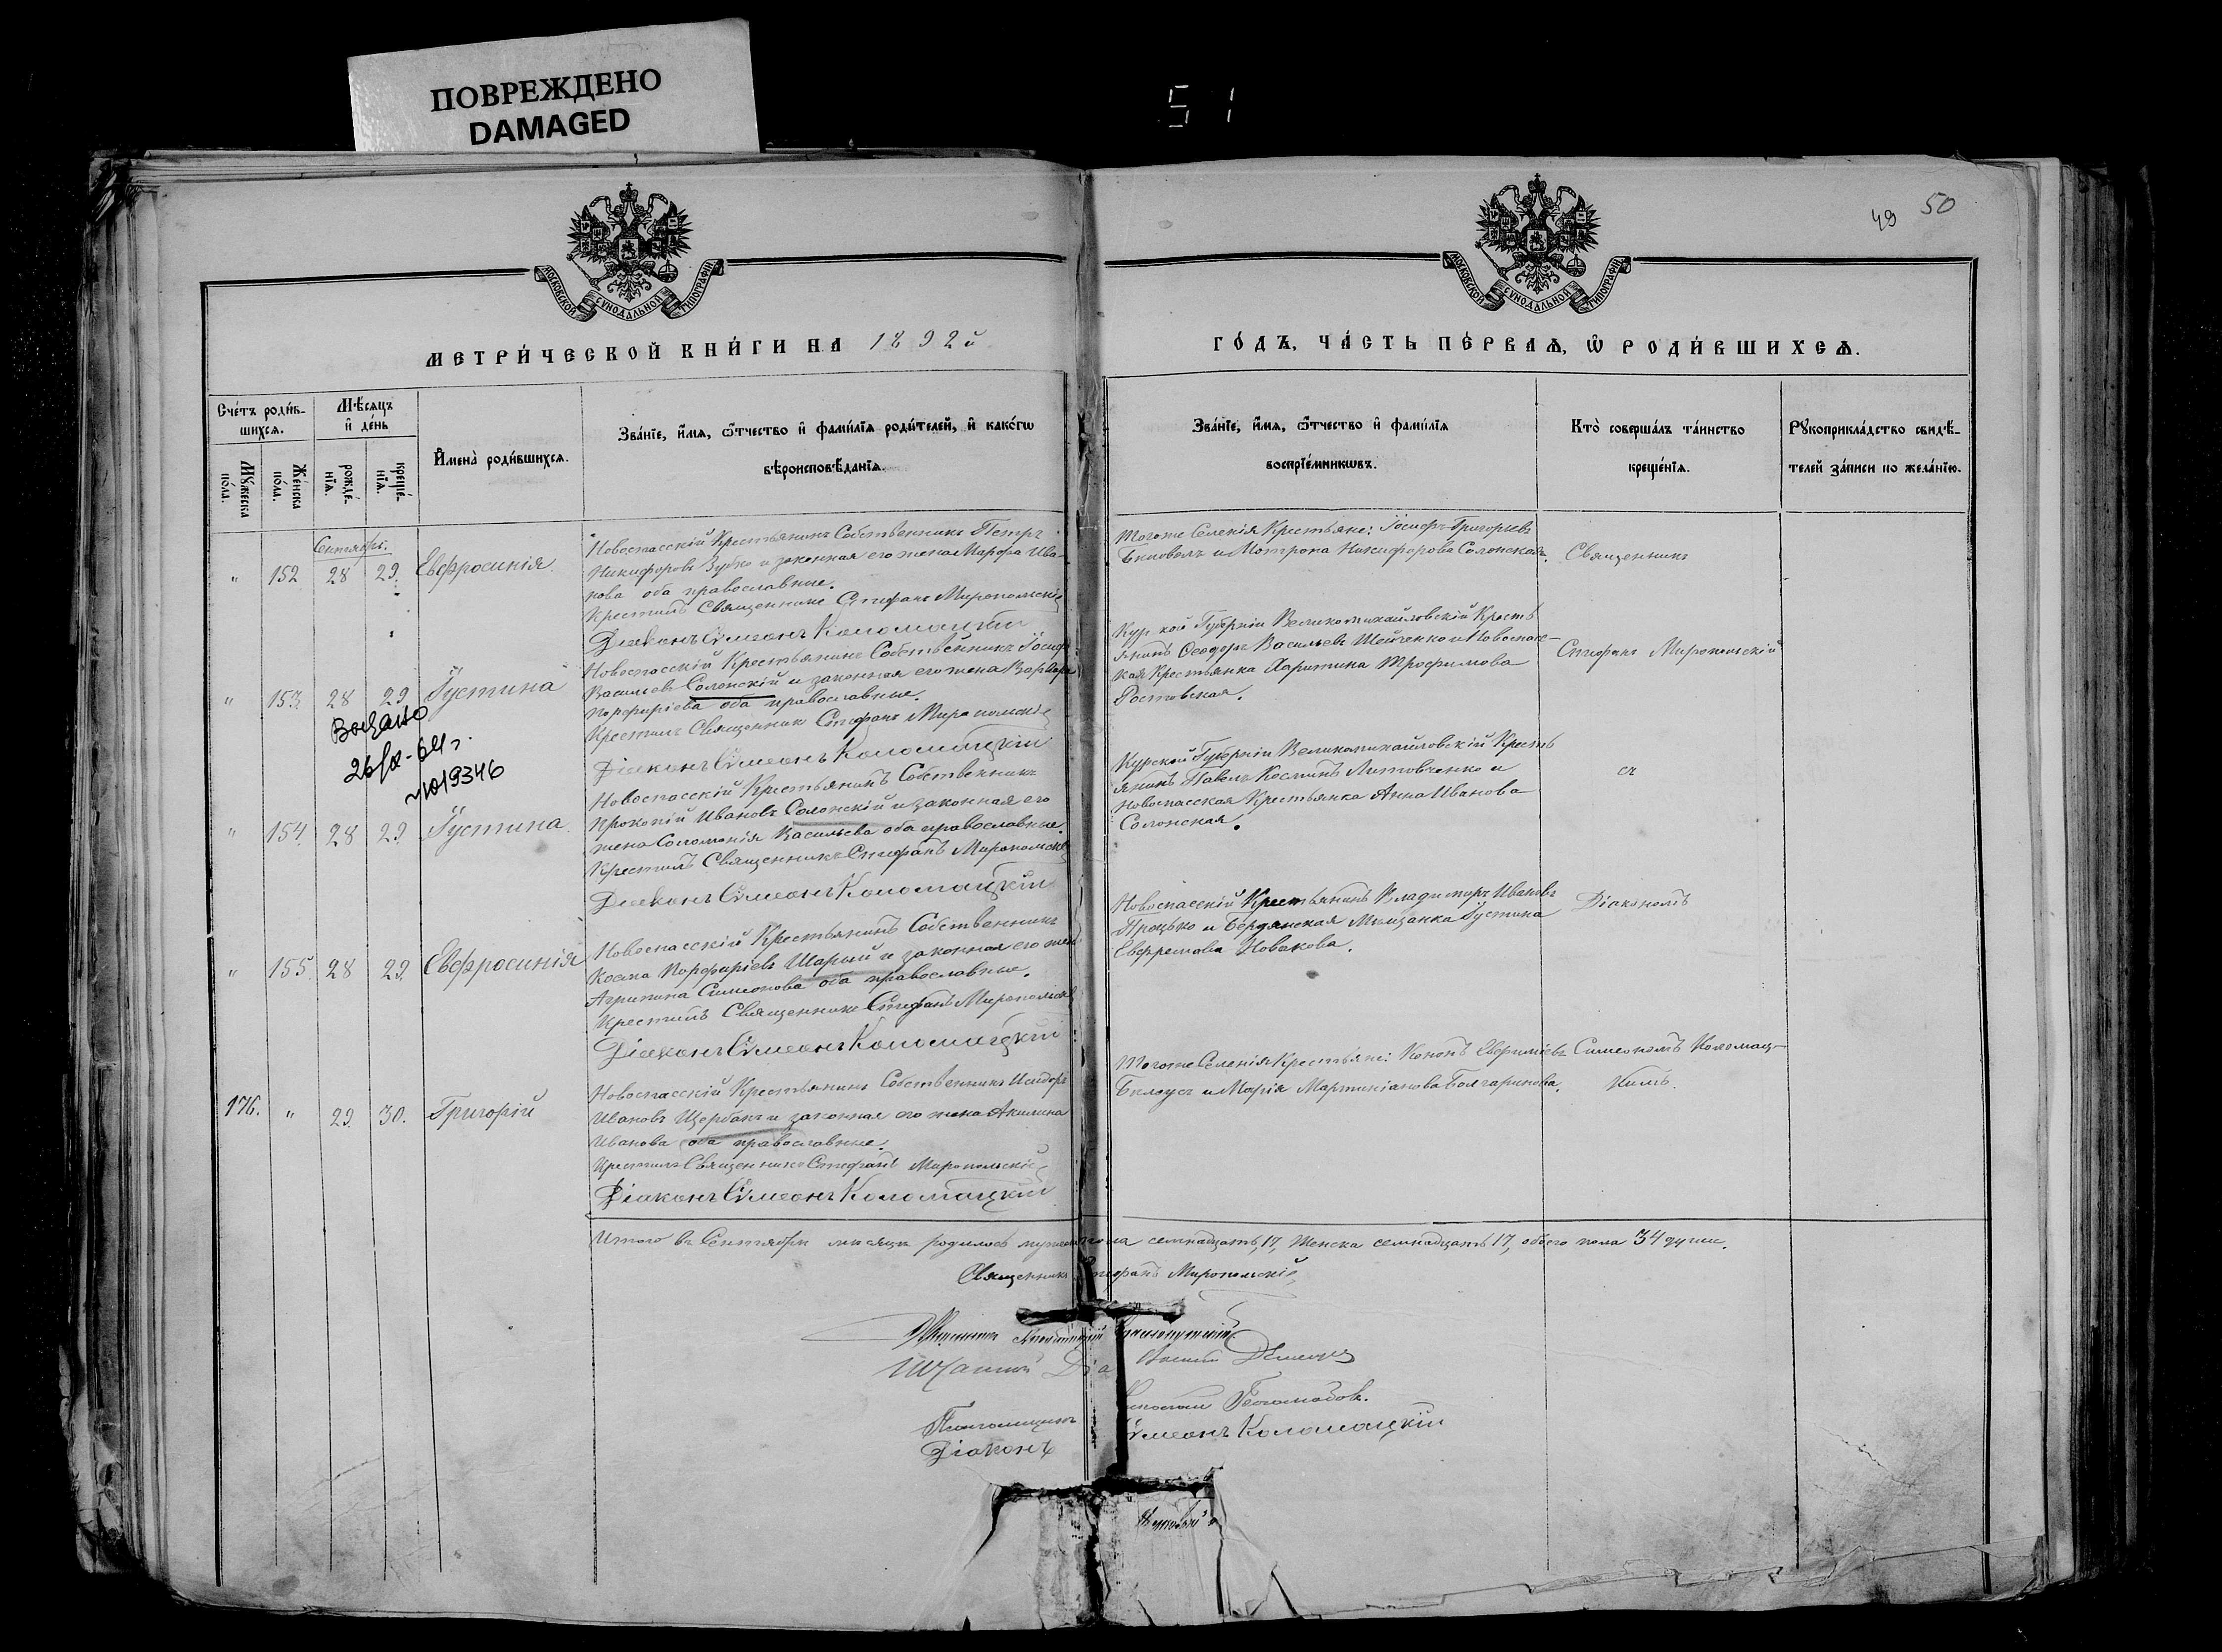 ПОВРЕЖДЕНО
DAMAGED
51
49 50
МОСКОВСКОЙ СѴНОДАЛЬНОЙ ТИПОГРАФІИ
МОСКОВСКОЙ СѴНОДАЛЬНОЙ ТИПОГРАФІИ
МЕТРИ́ЧЕСКОЙ КНИ́ГИ НА 1892й
ГО́ДЪ, ЧА́СТЬ ПЕ́РВАѦ, Ѡ РОДИ́ВШИХСѦ.
Сче́тъ роди́в-
шихсѧ.
Мꙋ́жеска по́ла.
Же́нска по́ла.
Мѣ́сѧцъ
и҆ де́нь
рожде́-нїѧ.
креще́-нїѧ.
И҆мена̀ роди́вшихсѧ.
Зва́нїе, и҆́мѧ, ѻ҆́тчество и҆ фами́лїѧ роди́телей, и҆ како́гѡ
вѣроисповѣ́данїѧ.
Зва́нїе, и҆́мѧ, ѻ҆́тчество и҆ фами́лїѧ
воспрїе́мникѡвъ.
Кто̀ соверша́лъ та́инство
креще́нїѧ.
Рꙋкоприкла́дство свидѣ́-
телей за́писи по жела́нїю.
Сентябрь.
" 152 28 29. Евфросинія
Новоспасскій Крестьянинъ Собственникъ Петръ
Никифоровъ Зубко и законная его жена Марфа Ива-
нова оба православные.
Крестилъ Священникъ Стефанъ Миропольскій
Діаконъ Сѵмеонъ Коломацкій
Тогоже Селенія Крестьяне: Іосифъ Григорьевъ
и Мотрона Никифорова Солонская.
Священникъ
" 153. 28 29 Іустина
Новоспасскій Крестьянинъ Собственникъ Іосифъ
Васильевъ Солонскій и законная его жена Варвара
Порфиріева оба православные.
Крестилъ Священникъ Стефанъ Миропольскій
Діаконъ Сѵмеонъ Коломацкій
Курской Губерніи Великомихайловскій Кресть
янинъ Ѳеодоръ Васильевъ Шейченко и Новоспасс-
кая Крестьянка Харитина Трофимова
Ростовская.
Стефанъ Миропольскій
Выдано
№019346
" 154. 28 29 Іустина.
Новоспасскій Крестьянинъ Собственникъ
Прокопій Ивановъ Солонскій и законная его
жена Соломонія Васильева оба православные.
Крестилъ Священникъ Стефанъ Миропольскій
Діаконъ Сѵмеонъ Коломацкій
Курской Губерніи Великомихайловскій Кресть
янинъ Павелъ Косминъ Литовченко и
Новоспасская Крестьянка Анна Иванова
Солонская.
съ
" 155. 28 29. Евфросинія
Новоспасскій Крестьянинъ Собственникъ
Косма Порфиріевъ Шарый и законная его жена
Агрипина Симеонова оба православные.
Крестилъ Священникъ Стефанъ Миропольскій
Діаконъ Сѵмеонъ Коломацкій
Новоспасскій Крестьянинъ Владимиръ Ивановъ
Процько и Бердянская Мѣщанка Іустина
Евфремова Новакова.
Діакономъ
176. " 29. 30. Григорій
Новоспасскій Крестьянинъ Собственникъ Исидоръ
Ивановъ Щербакъ и законная его жена Акилина
Иванова оба православные.
Крестилъ Священникъ Стефанъ Миропольскій
Діаконъ Сѵмеонъ Коломацкій
Тогоже Селенія Крестьяне: Кононъ Евфиміевъ
Бѣлоусъ и Марія Мартиніанова Болгаринова.
Симеономъ Коломац-
кимъ.
Итого въ Сентябрѣ мѣсяцѣ родилось мужеска пола семнадцать, 17, Женска семнадцать 17, обоего пола 34 души.
Священникъ Стефанъ Миропольскій
Діаконъ Сѵмеонъ Коломацкій